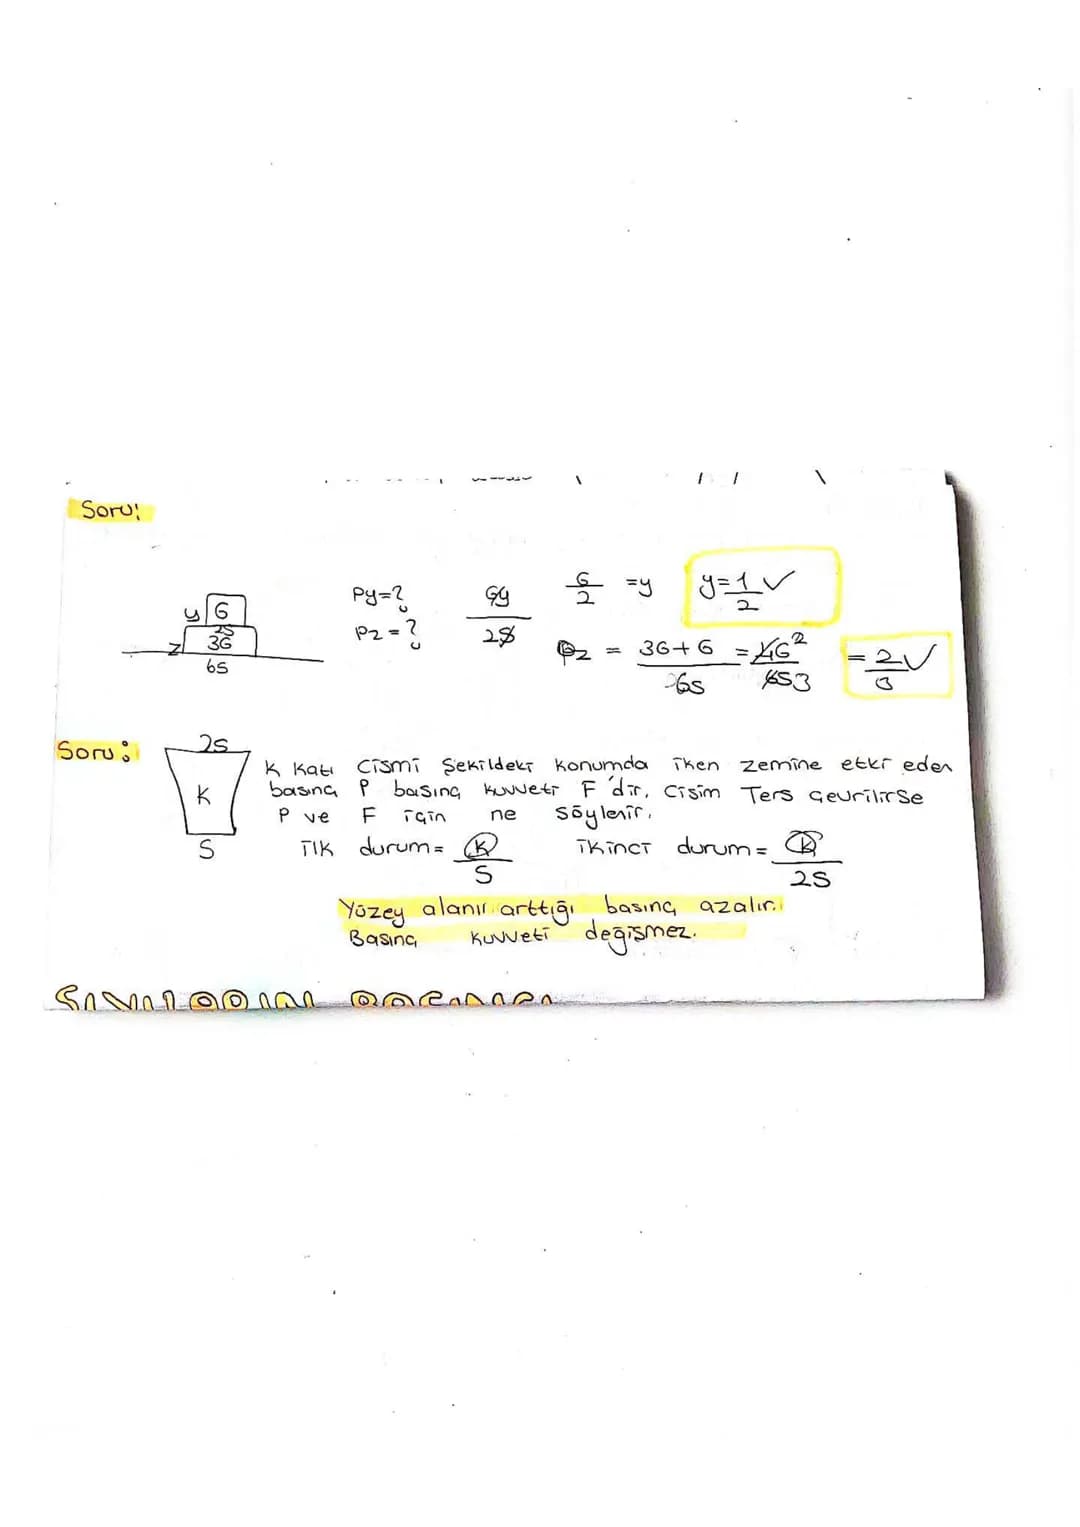 Soru:
y G
2S
z 3G
6S
Py=?
Pz=?
Gy
2S
G/2 =y
y=1/2 ✓
Pz = 3G+G/6s = 4G 2/6S 3 = 2/3 ✓
Soru:
2S
K
S
K Katı Cismi Şekildeki Konumda iken zemine etki eden
basınç P basınç kuvveti F'dir. Cisim Ters Çevrilirse
P ve F için ne söylenir.
ilk durum = K/S ikinci durum = K/2S
Yüzey alanı arttığı basınç azalır.
Basınç kuvveti değişmez.